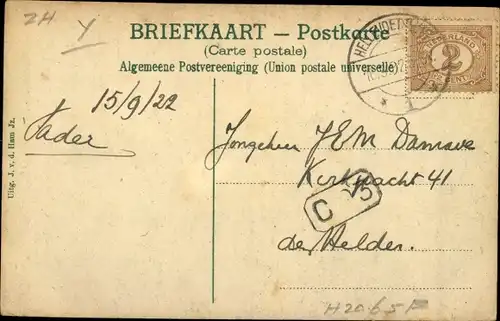 ZH
Y
BRIEFKAART — Postkarte
(Carte postale)
Algemeene Postvereeniging (Union postale universelle)
NEDERLAND
2
CENT
15/9/22
Vader
Jongeheer J E M Damave
Kerkgracht 41
den Helder.
C 5
H20.65F
Uitg. J. v. d. Ham Jz.